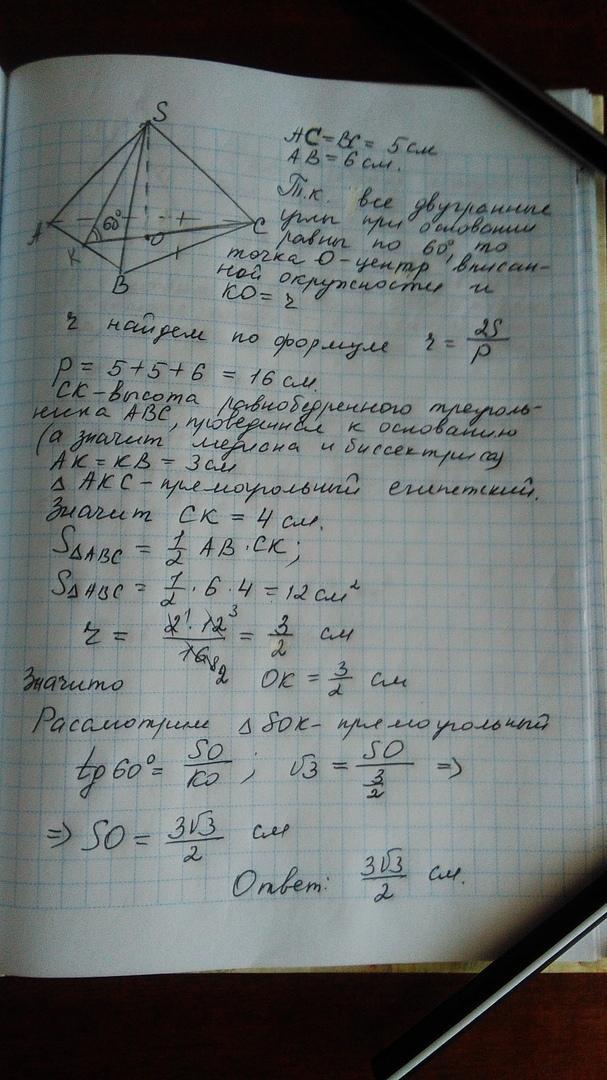 S
A
60°
C
K
O
B
AC=BC= 5 см
AB=6 см.
Т.к. все двугранные
углы при основании
равны по 60°, то
точка O-центр вписан-
ной окружности и
KO= r
r найдем по формуле r = 2S/P
P = 5+5+6 = 16 см.
CK-высота равнобедренного треуголь-
ника ABC, проведенная к основанию
(а значит медиана и биссектриса)
AK=KB=3см
△ AKC-прямоугольный египетский.
Значит CK = 4 см.
S△ABC = 1/2 AB·CK;
S△ABC = 1/2 · 6 · 4 = 12 см²
r = 2¹·12³/16 8 2 = 3/2 см
Значито OK = 3/2 см
Рассмотрим △ SOK- прямоугольный
tg 60° = SO/KO ; √3 = SO/(3/2) =>
=> SO = 3√3/2 см
Ответ: 3√3/2 см.